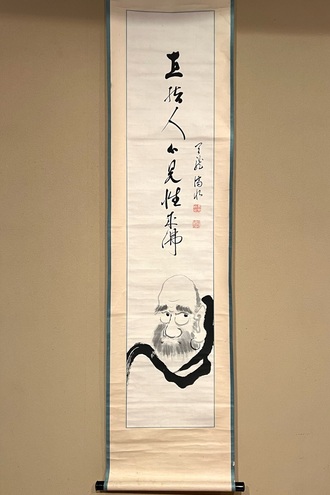 直指人心見性成佛